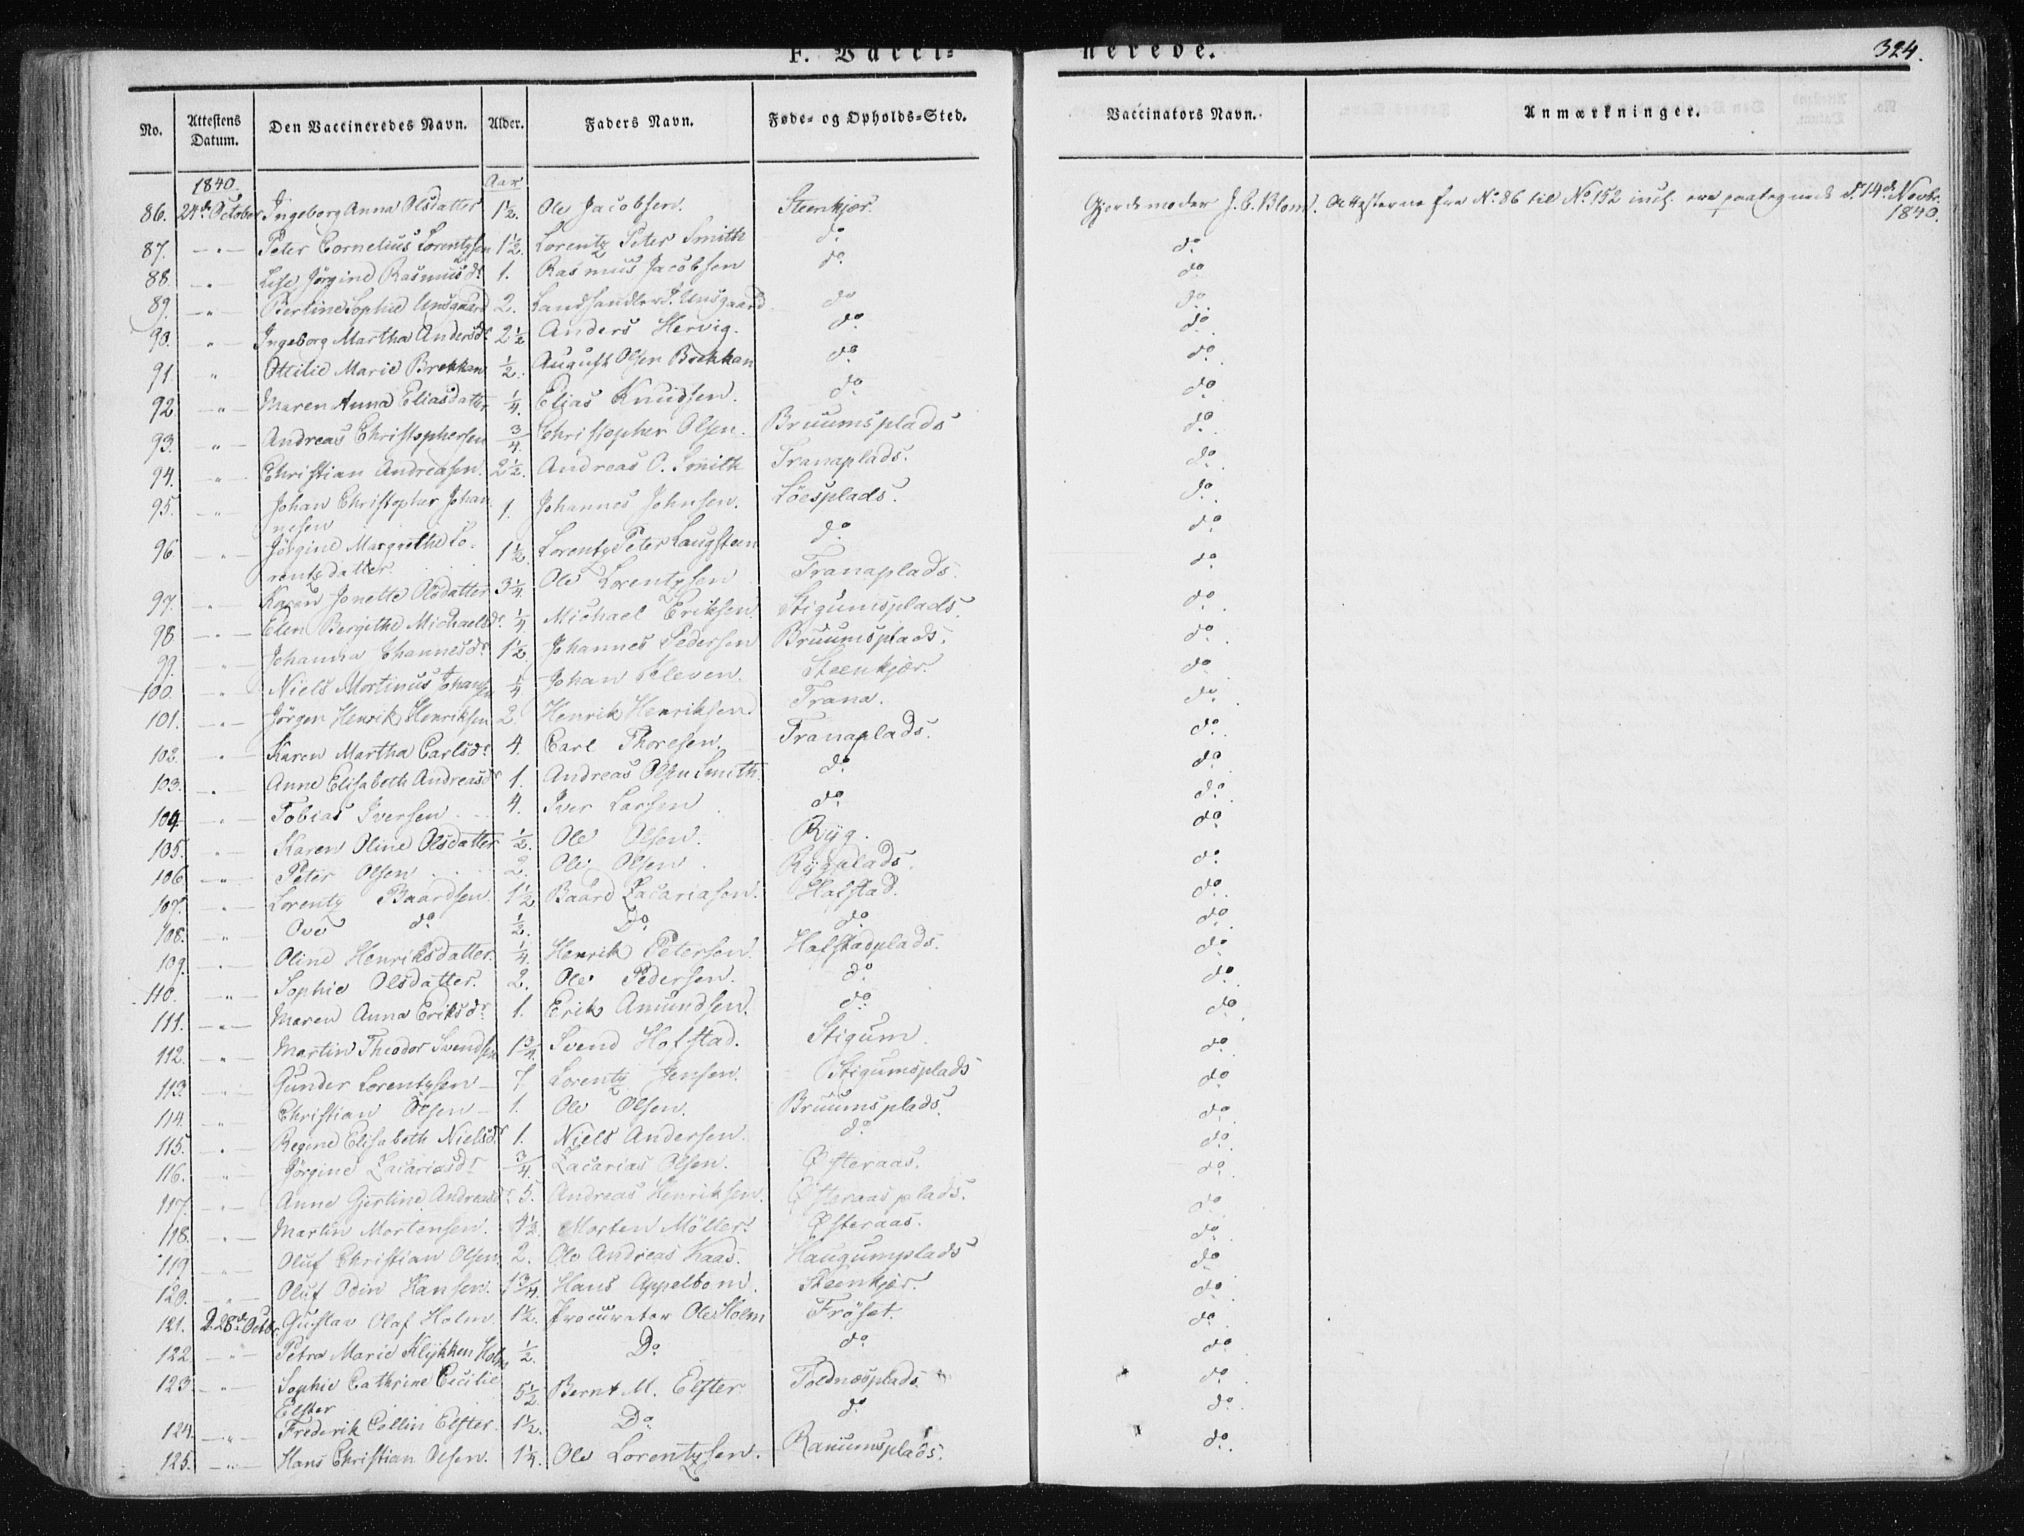 F. Vacci= nerede. 324.
No. Attestens Datum. Den Vaccineredes Navn. Alder. Faders Navn. Føde- og Opholds-Sted. Vaccinators Navn. Anmærkninger.
1840. Aar
86. 24de October Ingeborg Anna Olsdatter 1½. Ole Jacobsen. Steenkjær. Gjordemoder J. C. Blom. Attesterne fra No 86 til No 152 incl. ere paategnede d. 14de Novbr. 1840.
87. — " — Peter Cornelius Lorentzsen 1½. Lorentz Peter Smith do do
88. — " — Lise Jörgine Rasmusdr 1. Rasmus Jacobsen do. do.
89. — " — Berline Sophie Unsgaard 2. Landhandler P. Unsgaard do do.
90. " — Ingeborg Martha Andersdr 2½ Anders Hervig. do do.
91 " Ottilie Marie Brekkan ½. August Olsen Brekkan do. do.
92 — " — Maren Anna Eliasdatter ¼. Elias Knudsen. do. do.
93. — " — Andreas Christophersen ¾. Christopher Olsen. Bruumsplads do.
94. — " — Christian Andreasen. 2½. Andreas O. Smith Tranaplads. do.
95. — " — Johan Christopher Johan
nesen 1. Johannes Johnsen. Löesplads. do.
96. — " — Jörgine Margrethe Lo-
rentzdatter 1½. Lorentz Peter Laugsteen do. do.
97. — " — Karen Jonette Olsdatter 3¼. Ole Lorentzsen Tranaplads. do.
98 — " — Elen Bergithe Michaelsdr. ¼ Michael Eriksen. Stigumsplads. do.
99. — " — Johanna Johannesdr 1½. Johannes Pedersen Bruumsplads. do.
100. " — Niels Mortinus Johansen ¼ Johan Kleven. Steenkjær. do.
101. — " — Jörgen Henrik Henriksen 2. Henrik Henriksen Trana. do.
102. — " — Karen Martha Carlsdr. 4. Carl Thoresen. Tranaplads. do.
103. — " — Anne Elisabeth Andreasdr 1. Andreas Olsen Smith do. do.
104. — " — Tobias Iversen 4. Iver Larsen do do.
105. — " — Karen Oline Olsdatter ½. Ole Olsen. Ryg. do.
106. — " — Peter Olsen 2. Ole Olsen Rygplads. do.
107. — " — Lorentz Baardsen. 1½ Baard Zacariasen. Hafstad. do.
108. — " — Ove do ½. Do. do do
109. — " — Oline Henriksdatter. ¼. Henrik Petersen. Hafstadplads. do.
110. — " — Sophie Olsdatter. 2. Ole Pedersen. do. do.
111. — " — Maren Anna Eriksdr. 1. Erik Amundsen. do. do.
112. — " — Martin Theodor Svendsen 1¾. Svend Hofstad. Stigum. do.
113. — " — Gunder Lorentzsen — 7. Lorentz Jensen. Stigumsplads do.
114. — " — Christian Olsen — 1. Ole Olsen. Bruumsplads. do.
115. — " — Regine Elisabeth Nielsdr 1. Niels Andersen. do. do.
116. — " — Jörgine Zacariasdr ¾. Zacarias Olsen. Østeraas. do.
117. — " — Anne Gjertine Andreasdr. 5. Andreas Henriksen. Østeraasplads. do.
118. — " — Martin Mortensen. 4½. Morten Möller. Østeraas. do.
119 — " — Oluf Christian Olsen 2. Ole Andreas Kaas. Haugumplads do
120. — " — Oluf Odin Hansen. 1¾. Hans Appelbom. Steenkjær. do.
121. D. 28de Octbr. Gustav Olaf Holm 1½. Procurator Ole Holm Fröset. do.
122 — " — Petra Marie Klykken Holm ½. Do. do do.
123 — " — Sophie Cathrine Cecilie
Elster 5½ Bernt M. Elster Foldnæsplads. do.
124. — " — Frederik Collin Elster. 1½. Do. do do.
125. — " — Hans Christian Olsen. 1¼. Ole Lorentzsen. Ranumsplads. do.